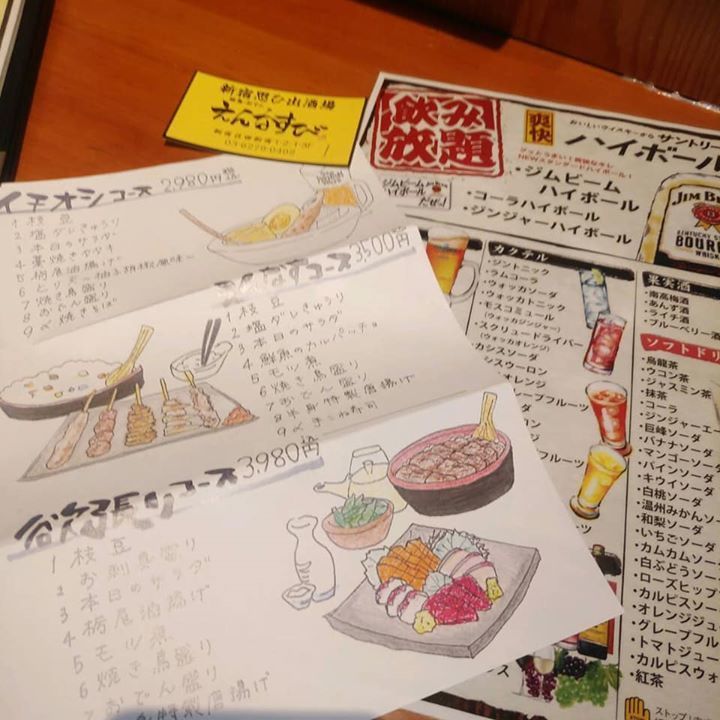 新宿思ひ出酒場
えんなすび
03-6278-0408
イチオシコース 2,980円
1 枝豆
2 塩ダレきゅうり
3 本日のサラダ
4 藁焼きカツオ
5 栃尾油揚げ
7 焼き鳥盛り
8 おでん盛り
9 〆焼きそば
えんなすコース 3,500円
1 枝豆
2 塩ダレきゅうり
3 本日のサラダ
4 鮮魚のカルパッチョ
5 モツ煮
6 焼き鳥盛り
7 おでん盛り
8 半身特製唐揚げ
欲張りコース 3,980円
1 枝豆
2 お刺身盛り
3 本日のサラダ
4 栃尾油揚げ
5 モツ煮
6 焼き鳥盛り
7 おでん盛り
特製唐揚げ
飲み
放題
爽快
おいしいウイスキーから サントリー
ハイボール
グッとうまい!爽快なキレ
NEWスタンダードハイボール!
・ジムビーム
ハイボール
・コーラハイボール
・ジンジャーハイボール
ジムビーム
ハイボール
だぜ!
JIM BE
KENTUCKY
BOURB
WHISK
カクテル
・ジントニック
・ラムコーラ
・ウォッカソーダ
・ウォッカトニック
・モスコミュール
(ウォッカジンジャー)
・スクリュードライバー
(ウォッカオレンジ)
カシスソーダ
シスウーロン
オレンジ
グレープフルーツ
果実酒
・南高梅酒
・あんず酒
・ライチ酒
・ブルーベリー酒
ソフトドリ
・烏龍茶
・ウコン茶
・ジャスミン茶
・抹茶
・コーラ
・ジンジャーエー
・巨峰ソーダ
・バナナソーダ
・マンゴーソーダ
・パインソーダ
・キウイソーダ
・白桃ソーダ
・温州みかんソー
・和梨ソーダ
・いちごソーダ
・カムカムソーダ
・白ぶどうソーダ
・ローズヒップ
・カルピスソー
・オレンジジュ
・グレープフル
・トマトジュー
・カルピスウォ
・紅茶
ストップ!